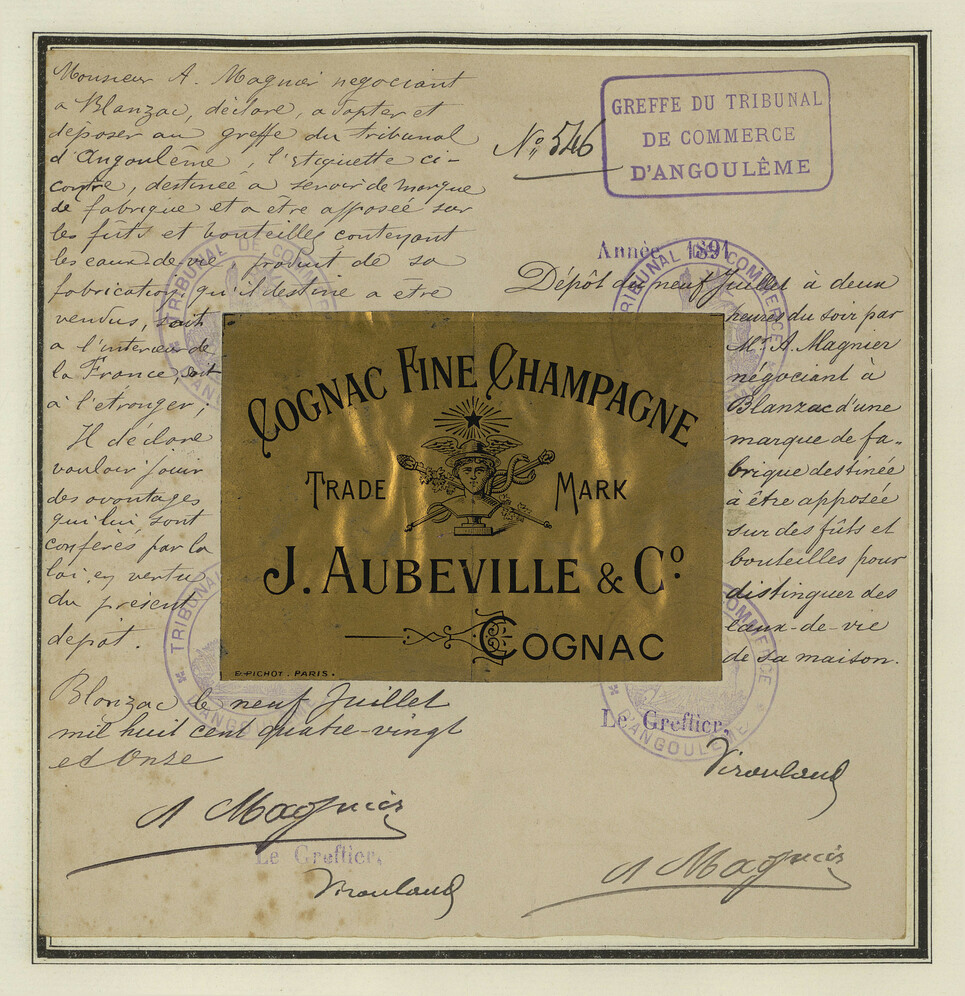 Monsieur A. Magnier négociant
a Blanzac, déclare, adopter et
déposer au greffe du tribunal
d'Angoulême, l'etiquette ci-
contre, destinée a servir de marque
de fabrique et a etre apposée sur
les fûts et bouteilles contenant
les eaux-de-vie produit de sa
fabrication qu'il destine a etre
vendus, soit
a l'interieur de
la France, soit
à l'étranger;
Il déclare
vouloir jouir
des avantages
qui lui, sont
conférés par la
loi, en vertu
du présent
depôt.
Blanzac le neuf Juillet
mil huit cent quatre-vingt
et Onze
A Magnier
Le Greffier,
N° 546
GREFFE DU TRIBUNAL
DE COMMERCE
D'ANGOULÊME
Année 1891
Dépôt du neuf Juillet à deux
heures du soir par
Mr. A Magnier
négociant à
Blanzac d'une
marque de fa-
brique destinée
à être apposée
sur des fûts et
bouteilles pour
distinguer des
eaux-de-vie
de sa maison.
Le Greffier,
A Magnier
COGNAC FINE CHAMPAGNE
TRADE MARK
J. AUBEVILLE & Co.
COGNAC
E. PICHOT. PARIS.
TRIBUNAL DE COMMERCE
TRIBUNAL DE COMMERCE
TRIBUNAL
D'ANGOULÊME
COMMERCE
D'ANGOULÊME